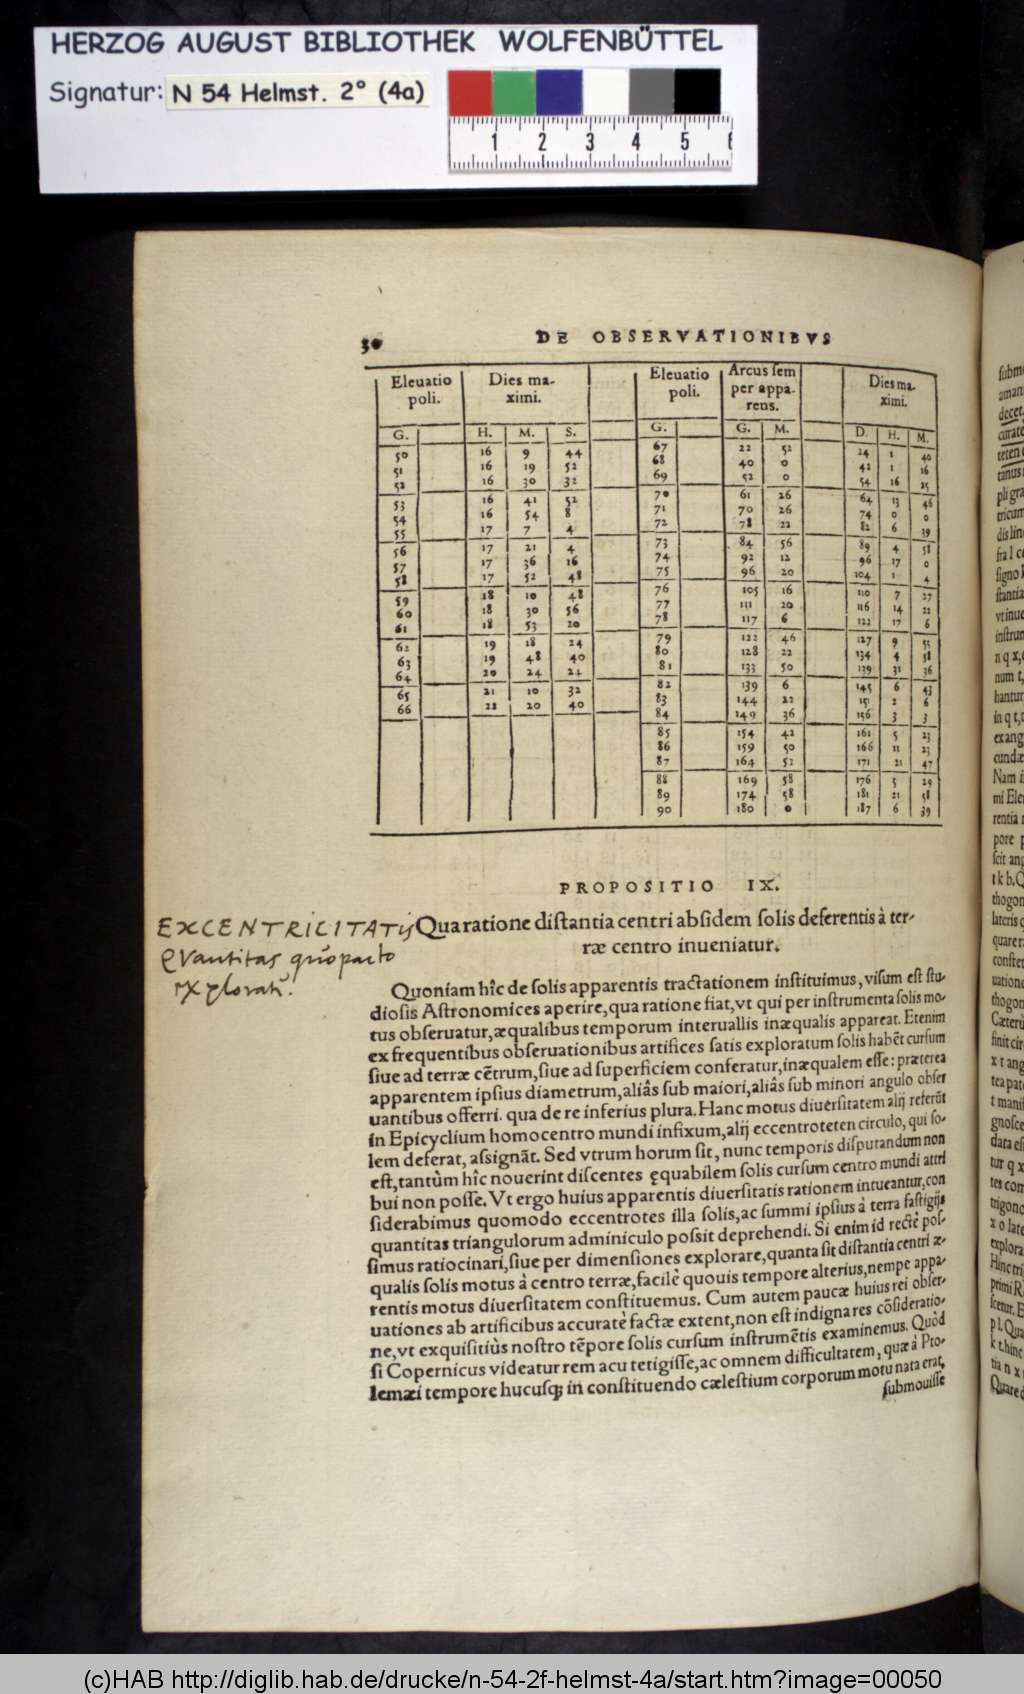 HERZOG AUGUST BIBLIOTHEK WOLFENBÜTTEL
Signatur: N 54 Helmst. 2° (4a)
1 2 3 4 5 6
30 DE OBSERVATIONIBVS
Eleuatio poli. Dies maximi. Eleuatio poli. Arcus semper apparens. Dies maximi.
G. H. M. S. G. G. M. D. H. M.
50 16 9 44 67 22 52 24 1 40
51 16 19 52 68 40 0 42 1 16
52 16 30 32 69 52 0 54 16 25
53 16 41 52 70 61 26 64 13 46
54 16 54 8 71 70 26 74 0 0
55 17 7 4 72 78 22 82 6 39
56 17 21 4 73 84 56 89 4 58
57 17 36 16 74 92 12 96 17 0
58 17 52 48 75 96 20 104 1 4
59 18 10 48 76 105 16 110 7 27
60 18 30 56 77 111 20 116 14 22
61 18 53 20 78 117 6 122 17 6
62 19 18 24 79 122 46 127 9 55
63 19 48 40 80 128 22 134 4 58
64 20 24 24 81 133 50 139 31 36
65 21 10 32 82 139 6 145 6 43
66 22 20 40 83 144 22 151 2 6
84 149 36 156 3 3
85 154 42 161 5 23
86 159 50 166 11 23
87 164 52 171 21 47
88 169 58 176 5 29
89 174 58 181 21 58
90 180 0 187 6 39
PROPOSITIO IX.
EXCENTRICITATIS
Qua ratione distantia centri absidem solis deferentis à ter-
ræ centro inueniatur.
Quantitas quo pacto
Quoniam hîc de solis apparentis tractationem instituimus, visum est stu-
diosis Astronomices aperire, qua ratione fiat, vt qui per instrumenta solis mo-
tus obseruatur, æqualibus temporum interuallis inæqualis appareat. Etenim
ex frequentibus obseruationibus artifices satis exploratum solis habēt cursum
siue ad terræ cētrum, siue ad superficiem conferatur, inæqualem esse: præterea
apparentem ipsius diametrum, aliâs sub maiori, aliâs sub minori angulo obser
uantibus offerri. qua de re inferius plura. Hanc motus diuersitatem alij referūt
in Epicyclium homocentro mundi infixum, alij eccentroteten circulo, qui so-
lem deferat, assignāt. Sed vtrum horum sit, nunc temporis disputandum non
est, tantùm hîc nouerint discentes ęquabilem solis cursum centro mundi attri
bui non posse. Vt ergo huius apparentis diuersitatis rationem intueantur, con
siderabimus quomodo eccentrotes illa solis, ac summi ipsius à terra fastigijs
quantitas triangulorum adminiculo possit deprehendi. Si enim id rectè pos-
simus ratiocinari, siue per dimensiones explorare, quanta sit distantia centri æ-
qualis solis motus à centro terræ, facilè quouis tempore alterius, nempe appa-
rentis motus diuersitatem constituemus. Cum autem paucæ huius rei obser-
uationes ab artificibus accuratè factæ extent, non est indigna res cōsideratio-
ne, vt exquisitiùs nostro tēpore solis cursum instrumētis examinemus. Quòd
si Copernicus videatur rem acu tetigisse, ac omnem difficultatem, quæ à Pto-
lemæi tempore hucusq; in constituendo cælestium corporum motu nata erat,
submouisse
(c)HAB http://diglib.hab.de/drucke/n-54-2f-helmst-4a/start.htm?image=00050